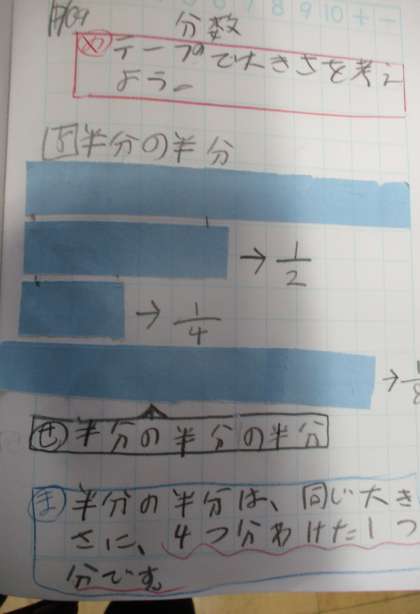 8 9 10 + -
P69
分数
め テープで大きさを考え
よう。
よ 半分の半分
→ 1/2
→ 1/4
→ 1/8
せ 半分の半分の半分
ま 半分の半分は、同じ大き
さに、4つ分わけた1つ
分です